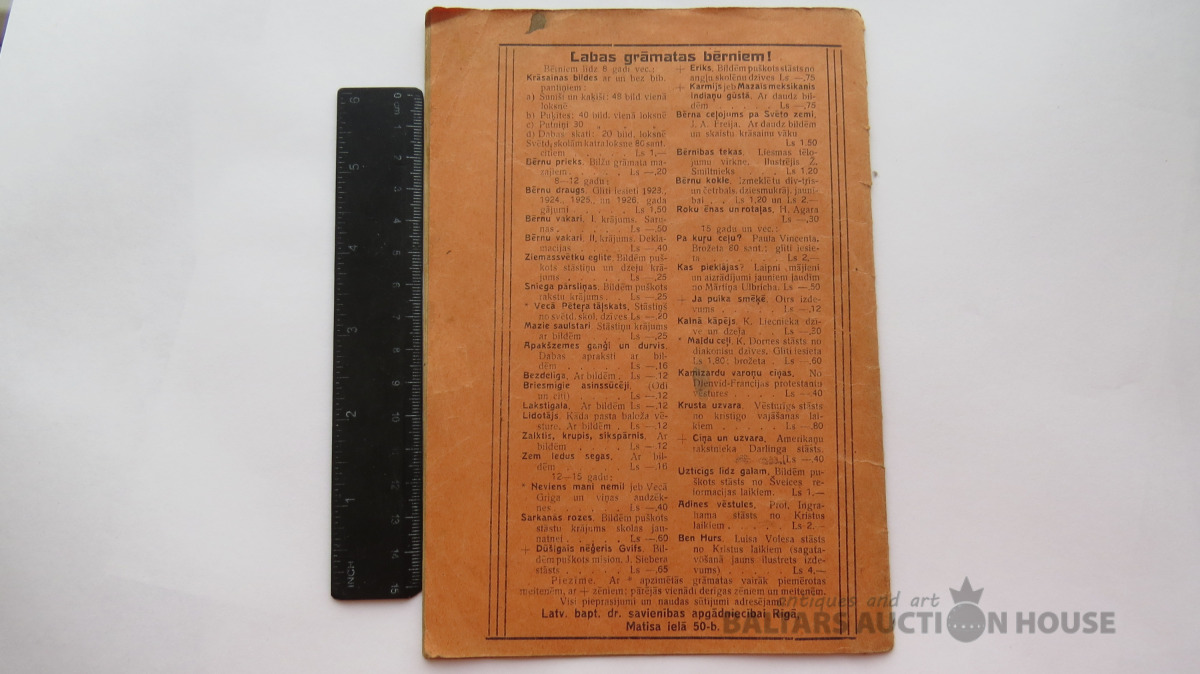 Labas grāmatas bērniem!
Bērniem līdz 8 gadi vec.:
Krāsainas bildes ar un bez bib.
pantiņiem:
a) Sunīši un kaķīši: 48 bild. vienā
loksnē
b) Puķītes: 40 bild. vienā loksnē
c) Putniņi 30 „ „ „
d) Dabas skati: 20 bild. loksnē
Svētd. skolām katra loksne 80 sant.
citiem . . . . . Ls 1,—
Bērnu prieks. Bilžu grāmata ma-
zajiem . . . . Ls —,20
8—12 gadu:
Bērnu draugs. Glīti iesieti 1923.,
1924., 1925., un 1926. gada
gājumi . . . . Ls 1,50
Bērnu vakari, I. krājums. Saru-
nas . . . . . Ls —,50
Bērnu vakari, II. krājums. Dekla-
mācijas . . . . Ls —,40
Ziemassvētku eglīte. Bildēm puš-
kots stāstiņu un dzeju krā-
jums . . . . Ls —,25
Sniega pārsliņas. Bildēm puškots
rakstu krājums . . Ls —,25
* Vecā Pētera tālskats. Stāstiņš
no svētd. skol. dzīves Ls —,20
Mazie saulstari. Stāstiņu krājums
ar bildēm . . . Ls —,25
Apakšzemes gangi un durvis.
Dabas apraksti ar bil-
dēm . . . . Ls —,16
Bezdelīga. Ar bildēm . Ls —,12
Briesmīgie asinssūcēji. (Odi
un citi) . . . . Ls —,12
Lakstīgala. Ar bildēm Ls —,12
Lidotājs. Kāda pasta baloža vē-
sture. Ar bildēm . Ls —,12
Zalktis, krupis, sikspārnis. Ar
bildēm . . . . Ls —,12
Zem ledus segas. Ar bil-
dēm . . . . . Ls —,16
12—15 gadu:
* Neviens mani nemīl jeb Vecā
Griga un viņas audzēk-
nes . . . . . Ls —,40
Sarkanās rozes. Bildēm puškots
stāstu krājums skolas jau-
natnei . . . . Ls —,60
+ Dūšīgais nēģeris Gvifs. Bil-
dēm puškots mision. J. Siebera
stāsts . . . . Ls —,65
+ Ēriks. Bildēm puškots stāsts no
angļu skolēnu dzīves Ls —,75
+ Karmijs jeb Mazais meksikanis
indiaņu gūstā. Ar daudz bil-
dēm . . . . Ls —,75
Bērna ceļojums pa Svēto zemi.
J. A. Freija. Ar daudz bildēm
un skaistu krāsainu vāku
Ls 1.50
Bērnības tekas. Liesmas tēlo-
jumu virkne. Ilustrējis Ž.
Smiltnieks. . . . Ls 1.20
Bērnu kokle. Izmeklētu div-trīs-
un četrbals. dziesmu krāj. jauni-
bai . . Ls 1,20 un Ls 2.—
Roku ēnas un rotaļas. H. Agara
Ls —,30
15 gadu un vec.:
Pa kuŗu ceļu? Paula Vincenta.
Brožēta 80 sant.; glīti iesie-
ta . . . . . Ls 2,—
Kas pieklājas? Laipni mājieni
un aizrādījumi jauniem ļaudīm
no Mārtiņa Ulbricha. Ls —.50
+ Ja puika smēķē. Otrs izde-
vums . . . . . Ls —,12
Kalnā kāpējs. K. Liecnieka dzī-
ve un dzeja . . . Ls —,50
* Maldu ceļi. K. Dornes stāsts no
diakonisu dzīves. Glīti iesieta
Ls 1,80; brožēta . Ls —.60
Kamizardu varoņu cīņas. No
Dienvid-Francijas protestantu
vēstures . . . . Ls —40
Krusta uzvara. Vēsturīgs stāsts
no kristīgo vajāšanas lai-
kiem . . . . Ls —,80
+ Cīņa un uzvara. Amerikaņu
rakstnieka Darlinga stāsts.
Ls —.40
Uzticīgs līdz galam. Bildēm pu-
škots stāsts no Šveices re-
formācijas laikiem. Ls 1.—
Adīnes vēstules. Prof. Ingra-
hama stāsts no Kristus
laikiem . . . . Ls 2.—
Ben Hurs. Luisa Volesa stāsts
no Kristus laikiem (sagata-
vošanā jauns ilustrēts izde-
vums) . . . . Ls 4,—
Piezīme. Ar * apzīmētās grāmatas vairāk piemērotas
meitenēm, ar + zēniem; pārējās vienādi derīgas zēniem un meitenēm.
Visi pieprasījumi un naudas sūtījumi adresējami:
Latv. bapt. dr. savienības apgādniecībai Rīgā,
Matīsa ielā 50-b.
0 cm 1 2 3 4 5 6 7 8 9 10 11 12 13 14 15
INCH 1 2 3 4 5 6
antiques and art
BALTARS AUCTION HOUSE